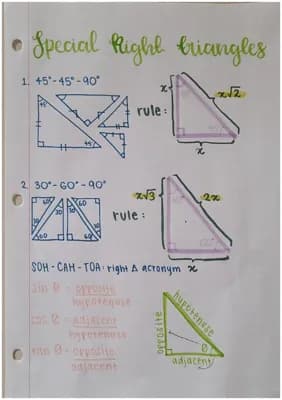 Special Right triangles
1. 45°-45°-90°
45
45
rule:
x
x√2
x
2. 30°-60°-90°
30
30
60
60
60
rule:
x√3
2x
x
SOH-CAH-TOA: right △ acronym
sin θ = opposite
hypotenose
cos θ = adjacent
hypotenose
tan θ = opposite
adjacent
opposite
hypotenuse
θ
adjacent